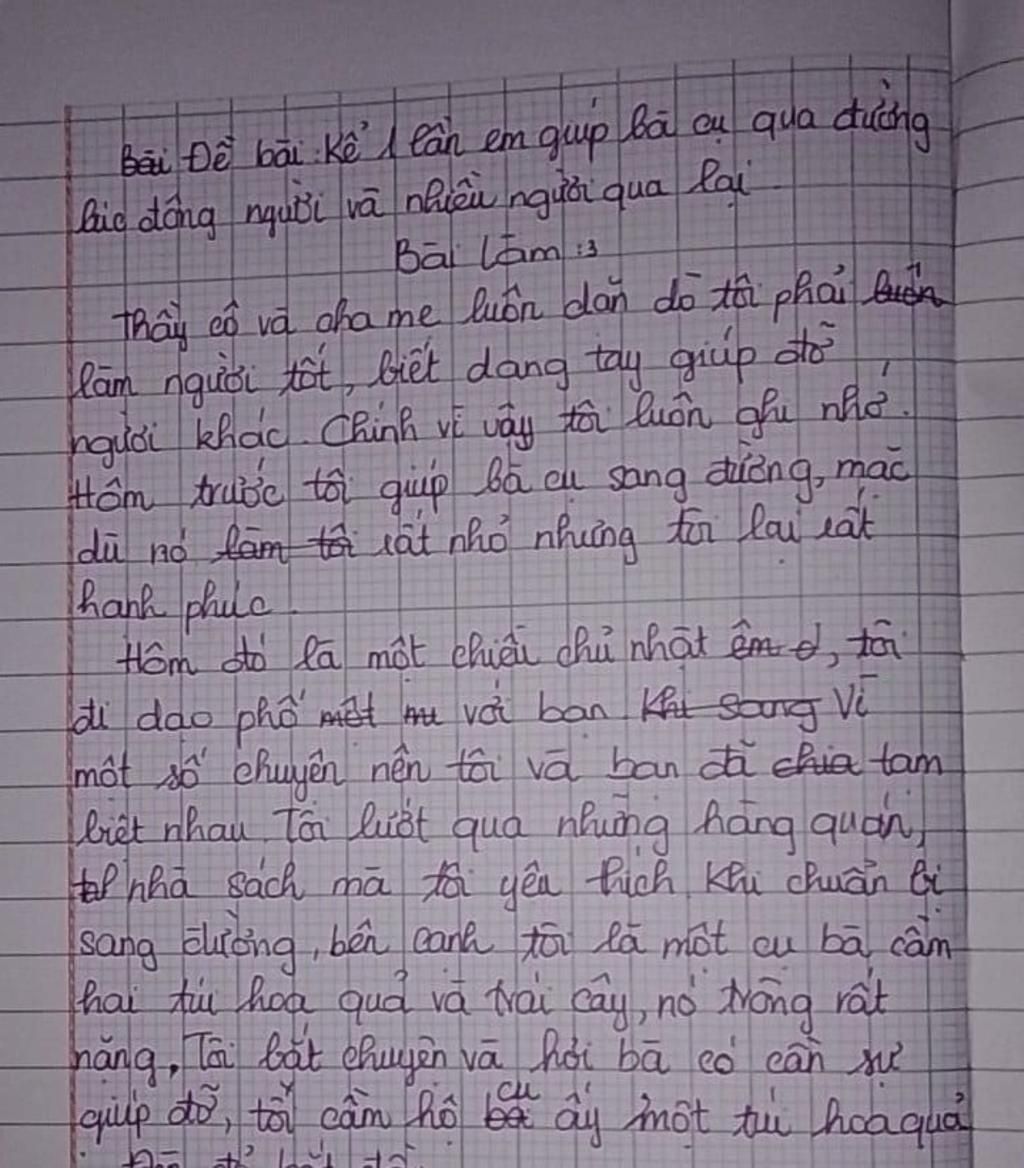 Bài Đề bài: Kể 1 lần em giúp bà cụ qua đường
lúc đông người và nhiều người qua lại
Bài làm :3
Thầy cô và cha mẹ luôn dặn dò tôi phải luôn
làm người tốt, biết dang tay giúp đỡ
người khác. Chính vì vậy tôi luôn ghi nhớ.
Hôm trước tôi giúp bà cụ sang đường, mặc
dù nó làm tôi rất nhỏ nhưng tôi lại rất
hạnh phúc.
Hôm đó là một chiều chủ nhật êm ả, tôi
đi dạo phố một mu với bạn khi sang Vì
một số chuyện nên tôi và bạn đã chia tạm
biệt nhau. Tôi lướt qua những hàng quán,
nhà sách mà tôi yêu thích khi chuẩn bị
sang đường, bên cạnh tôi là một cụ bà cầm
hai túi hoa quả và trái cây, nó trông rất
nặng. Tôi bắt chuyện và hỏi bà có cần sự
giúp đỡ, tôi cầm hộ bà cụ ấy một túi hoa quả